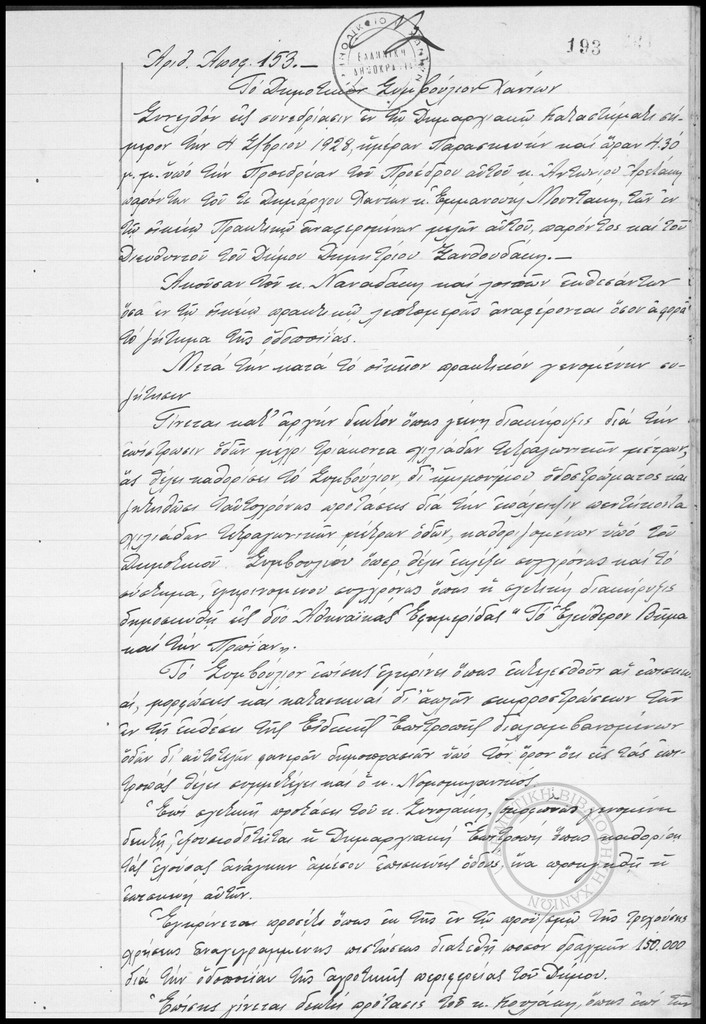 193
ΕΛΛΗΝΙΚΗ
ΔΗΜΟΚΡΑΤΙΑ
Ἀριθ. Ἀποφ. 153.—
Τὸ Δημοτικὸν Συμβούλιον Χανίων
Συνελθὸν εἰς συνεδρίασιν ἐν τῷ Δημαρχιακῷ Καταστήματι σή-
μερον τὴν 1928, ἡμέραν Παρασκευὴν καὶ ὥραν 4.30
μ.μ. ὑπὸ τὴν Προεδρίαν τοῦ Προέδρου αὐτοῦ κ. Ἀντωνίου
παρόντων τοῦ τε Δημάρχου Χανίων κ. Ἐμμανουὴλ Μουντάκη, τῶν ἐν
τῷ οἰκείῳ Πρακτικῷ ἀναφερομένων μελῶν αὐτοῦ, παρόντος καὶ τοῦ
Διευθυντοῦ τοῦ Δήμου Δημητρίου Ξανθουδάκη.—
Ἀκούσαν τοῦ κ. Ναναδάκη καὶ λοιπῶν ἐκθεσάντων
ὅσα ἐν τῷ οἰκείῳ πρακτικῷ λεπτομερῶς ἀναφέρονται ὅσον ἀφορᾷ
τὸ ζήτημα τῆς ὁδοποιΐας.
Μετὰ τὴν κατὰ τὸ οἰκεῖον πρακτικὸν γενομένην συ-
ζήτησιν
Γίνεται κατ' ἀρχὴν δεκτὸν ὅπως γείνῃ διακήρυξις διὰ τὴν
ἐπίστρωσιν ὁδῶν μέχρι τριάκοντα χιλιάδων τετραγωνικῶν μέτρων,
ἃς θέλει καθορίσει τὸ Συμβούλιον, δι' ἡμιμονίμου ὁδοστρώματος καὶ
ζητηθῶσι ταὐτοχρόνως προτάσεις διὰ τὴν πεντήκοντα
χιλιάδων τετραγωνικῶν μέτρων ὁδῶν, καθοριζομένων ὑπὸ τοῦ
Δημοτικοῦ Συμβουλίου ὅπερ θέλει ἐκλέξει συγχρόνως καὶ τὸ
σύστημα, ἐγκρινομένου συγχρόνως ὅπως ἡ σχετικὴ διακήρυξις
δημοσιευθῇ εἰς δύο Ἀθηναϊκὰς Ἐφημερίδας "Τὸ Ἐλεύθερον Βῆμα
καὶ τὴν Πρωΐαν".
Τὸ Συμβούλιον ἐπίσης ἐγκρίνει ὅπως ἐκτελεσθοῦν αἱ ἐπισκευ-
αί, μορφώσεις καὶ κατασκευαὶ δι' ἁπλῶν σκυροστρώσεων τῶν
ἐν τῇ ἐκθέσει τῆς Εἰδικῆς Ἐπιτροπῆς διαλαμβανομένων
ὁδῶν δι' αὐτοτελῶν φανερῶν δημοπρασιῶν ὑπὸ τὸν ὅρον ὅτι εἰς τὰς ἐπι-
τροπὰς θέλει συμμετέχει καὶ ὁ κ. Νομομηχανικός.
Ἐπὶ σχετικῇ προτάσει τοῦ κ. γενομένῃ
δεκτῇ, ἐξουσιοδοτεῖται ἡ Δημαρχιακὴ Ἐπιτροπὴ ὅπως καθορίσῃ
τὰς ἐχούσας ἀνάγκην ἀμέσου ἐπισκευῆς ὁδούς, ἵνα προκηρυχθῇ ἡ
ἐπισκευὴ αὐτῶν.
Ἐγκρίνεται προσέτι ὅπως ἐκ τῆς ἐν τῷ προϋπ/σμῷ τῆς τρεχούσης
χρήσεως ἐναγεγραμμένης πιστώσεως διατεθῇ ποσὸν δραχμῶν 150.000
διὰ τὴν ὁδοποιΐαν τῆς ἀγροτικῆς περιφερείας τοῦ Δήμου.
Ἐπίσης γίνεται δεκτὴ πρότασις τοῦ κ. ὅπως ἐπὶ τῶν
ΔΗΜΟΤΙΚΗ ΒΙΒΛΙΟΘΗΚΗ ΧΑΝΙΩΝ